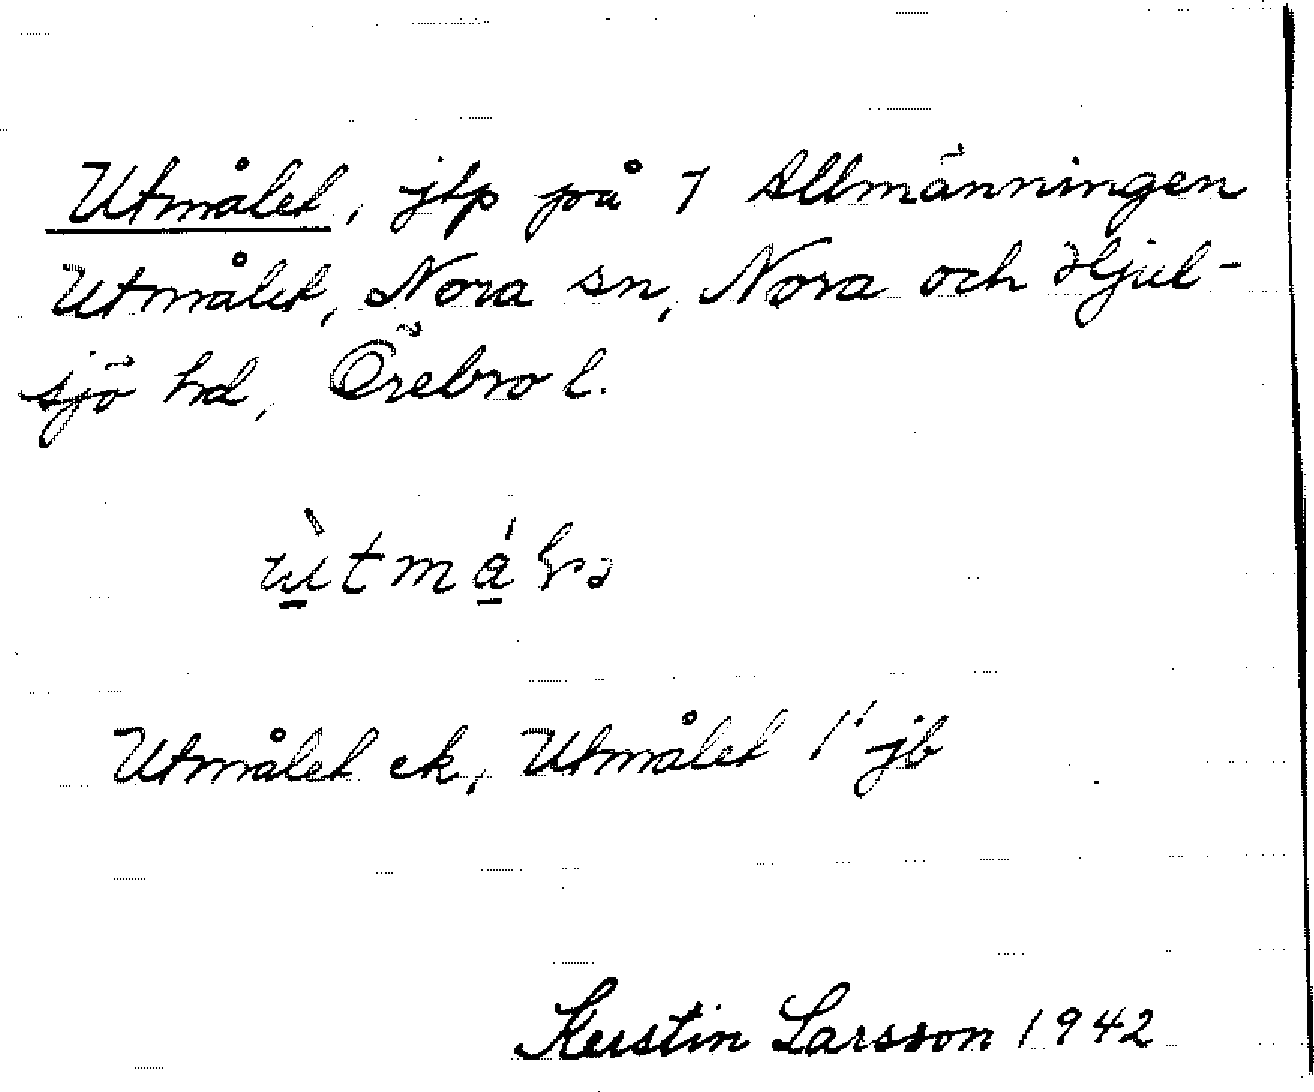 Utmålet, jtp på 7 Allmänningen
Utmålet, Nora sn, Nora och Hjul-
sjö hd, Örebro l.
Utmålet ek, Utmålet 1" jb
Kerstin Larsson 1942